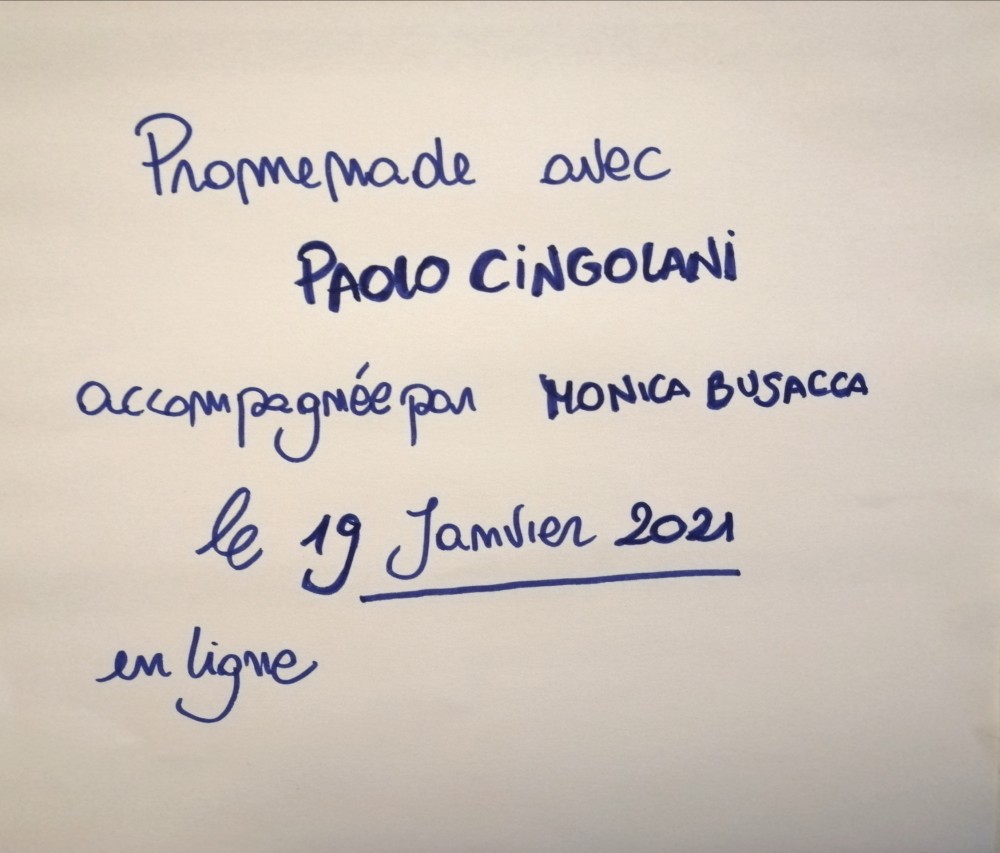 Promenade avec
PAOLO CiNGOLANi
accompagnée par MONICA BUSACCA
le 19 Janvier 2021
en ligne